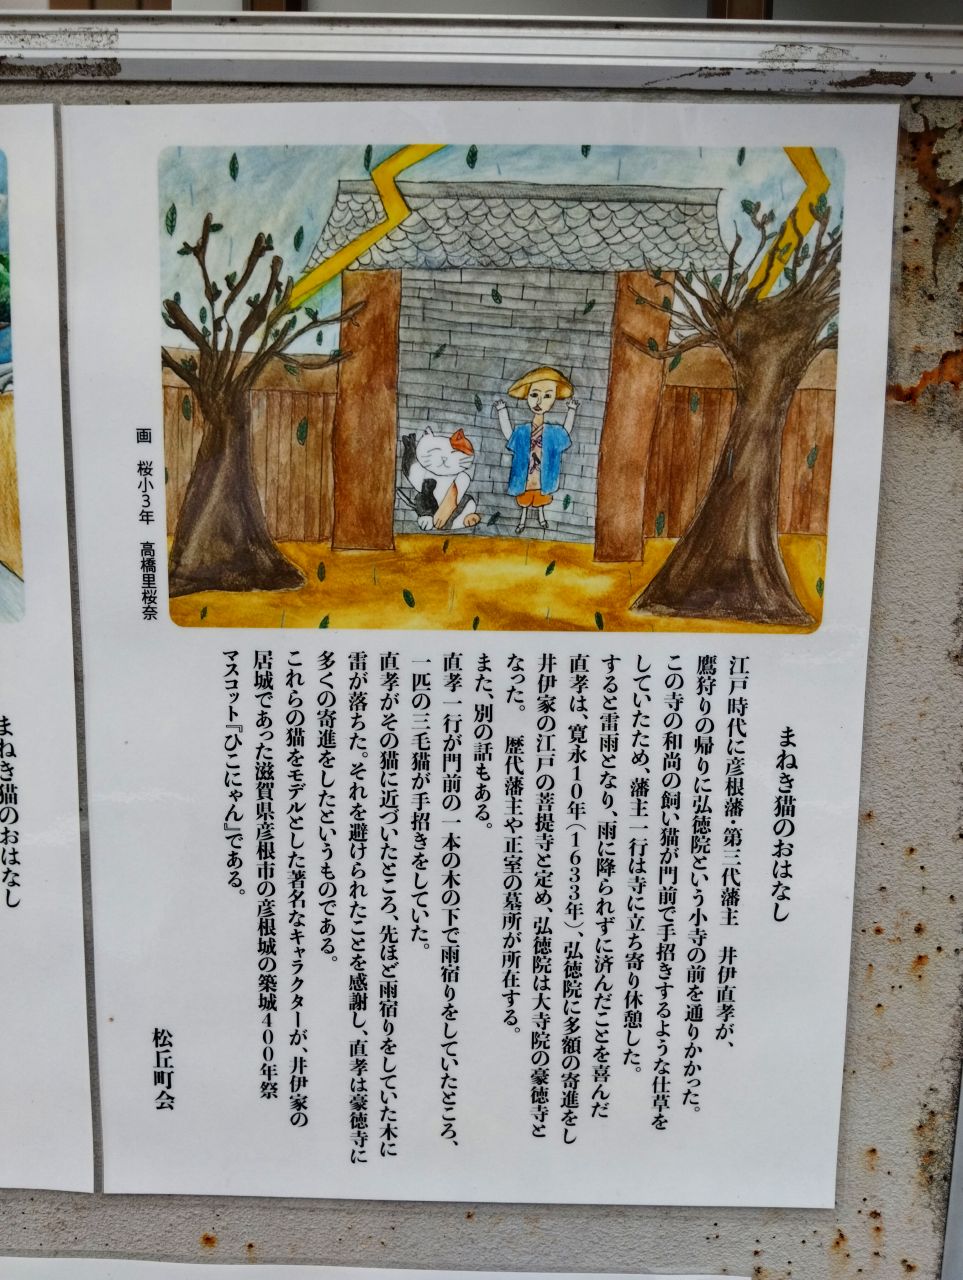 画　桜小3年　高橋里桜奈
まねき猫のおはなし
江戸時代に彦根藩・第三代藩主　井伊直孝が、
鷹狩りの帰りに弘徳院という小寺の前を通りかかった。
この寺の和尚の飼い猫が門前で手招きするような仕草を
していたため、藩主一行は寺に立ち寄り休憩した。
すると雷雨となり、雨に降られずに済んだことを喜んだ
直孝は、寛永10年（1633年）、弘徳院に多額の寄進をし
井伊家の江戸の菩提寺と定め、弘徳院は大寺院の豪徳寺と
なった。　歴代藩主や正室の墓所が所在する。
また、別の話もある。
直孝一行が門前の一本の木の下で雨宿りをしていたところ、
一匹の三毛猫が手招きをしていた。
直孝がその猫に近づいたところ、先ほど雨宿りをしていた木に
雷が落ちた。それを避けられたことを感謝し、直孝は豪徳寺に
多くの寄進をしたというものである。
これらの猫をモデルとした著名なキャラクターが、井伊家の
居城であった滋賀県彦根市の彦根城の築城400年祭
マスコット『ひこにゃん』である。
松丘町会
まねき猫のおはなし